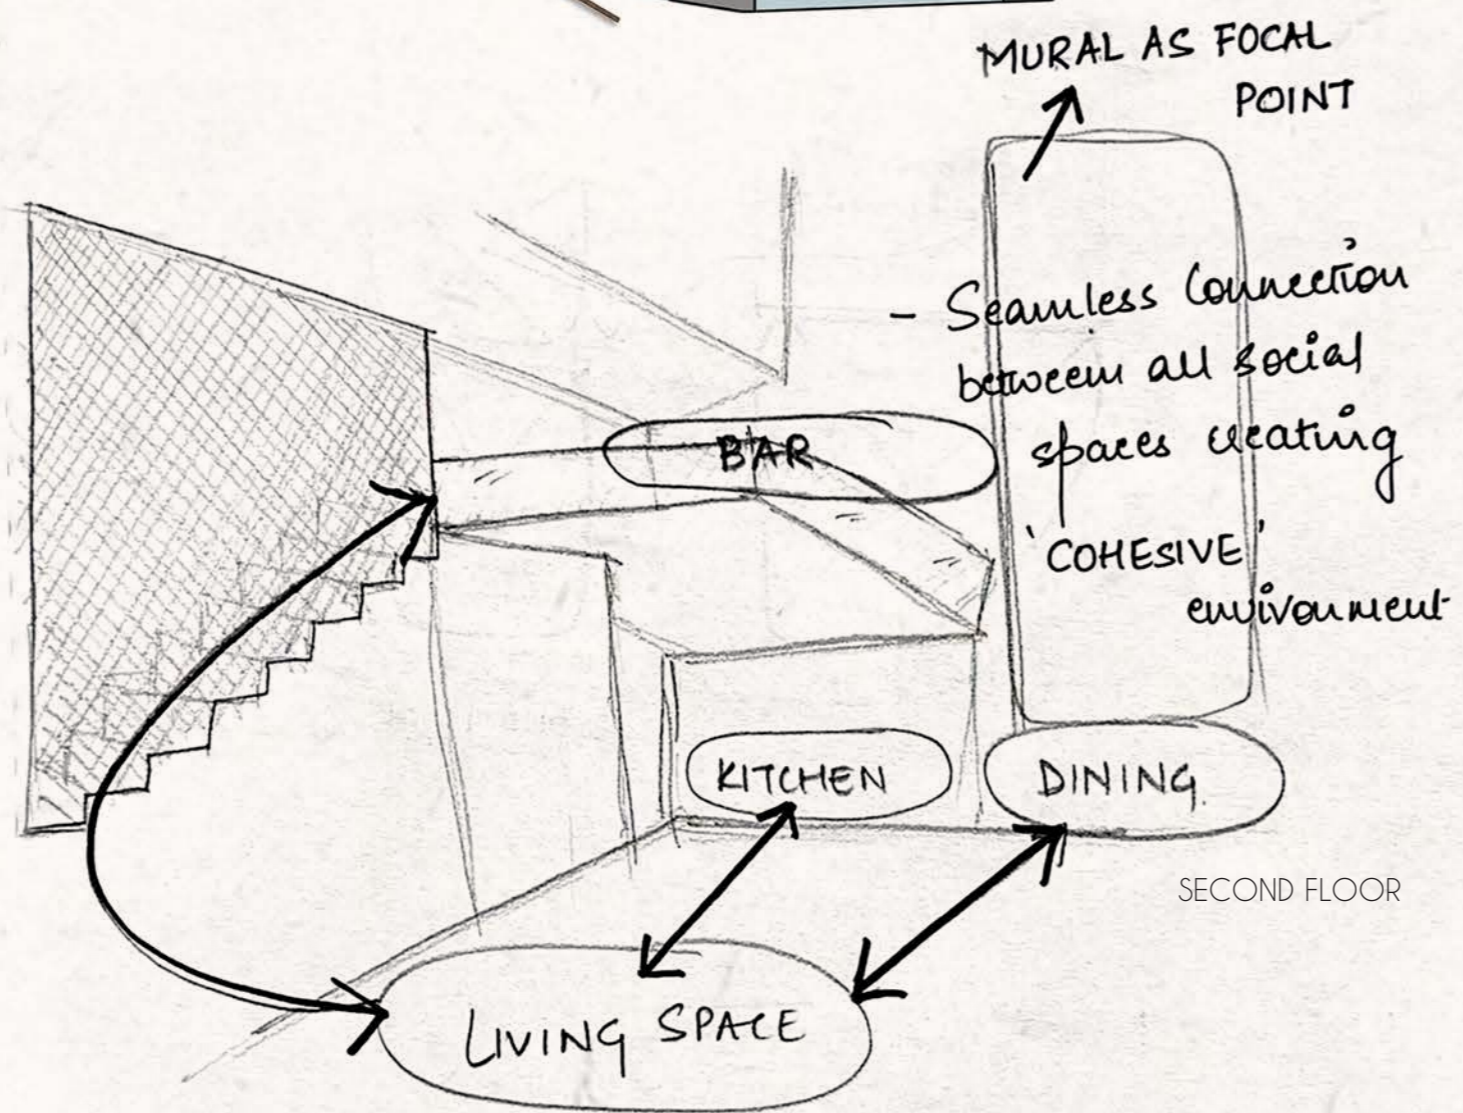 MURAL AS FOCAL
POINT
- Seamless Connection
between all social
spaces creating
'COHESIVE'
environment
BAR
KITCHEN
DINING
SECOND FLOOR
LIVING SPACE